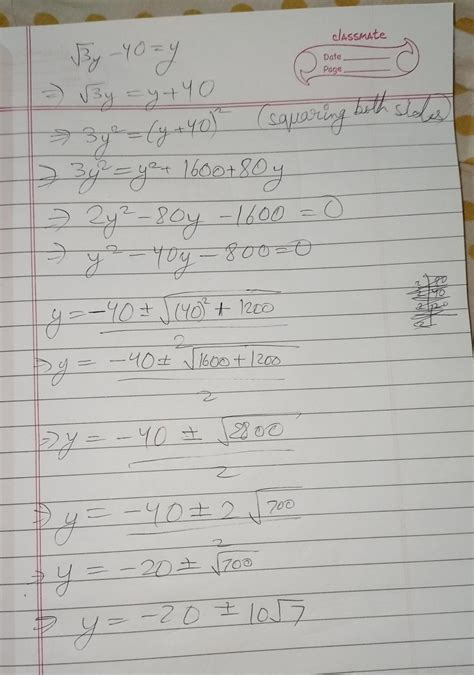 classmate
Date
Page
√3y - 40 = y
⇒ √3y = y + 40
⇒ 3y² = (y + 40)² (squaring both sides)
⇒ 3y² = y² + 1600 + 80y
⇒ 2y² - 80y - 1600 = 0
⇒ y² - 40y - 800 = 0
y = -40 ± √(40)² + 1200 / 2
⇒ y = -40 ± √1600 + 1200 / 2
⇒ y = -40 ± √2800 / 2
⇒ y = -40 ± 2√700 / 2
⇒ y = -20 ± √700
⇒ y = -20 ± 10√7